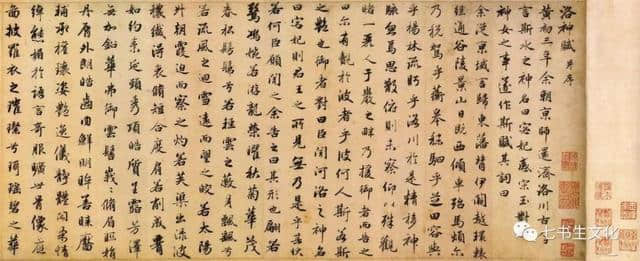 洛神賦 并序
黃初三年余朝京師還濟洛川古人有
言斯水之神名曰宓妃感宋玉對楚王
神女之事遂作斯賦其詞曰
余從京域言歸東藩背伊闕越轘轅
經通谷陵景山日既西傾車殆馬煩爾
乃稅駕乎蘅皋秣駟乎芝田容與
乎楊林流眄乎洛川於是精移神
駭忽焉思散俯則未察仰以殊觀
睹一麗人于巖之畔乃援御者而告之
曰爾有覿於彼者乎彼何人斯若斯
之豔也御者對曰臣聞河洛之神名
曰宓妃則君王之所見無乃是乎其狀
若何臣願聞之余告之曰其形也翩若
驚鴻婉若游龍榮曜秋菊華茂
春松髣髴兮若輕雲之蔽月飄飄兮
若流風之迴雪遠而望之皎若太陽
升朝霞迫而察之灼若芙蕖出淥波
穠纖得衷脩短合度肩若削成腰
如約素延頸秀項皓質呈露芳澤
無加鉛華弗御雲髻峨峨脩眉聯娟
丹脣外朗皓齒內鮮明眸善睞靨
輔承權瓌姿豔逸儀靜體閑柔情
綽態媚於語言奇服曠世骨像應
圖披羅衣之璀璨兮珥瑤碧之華
七书生文化